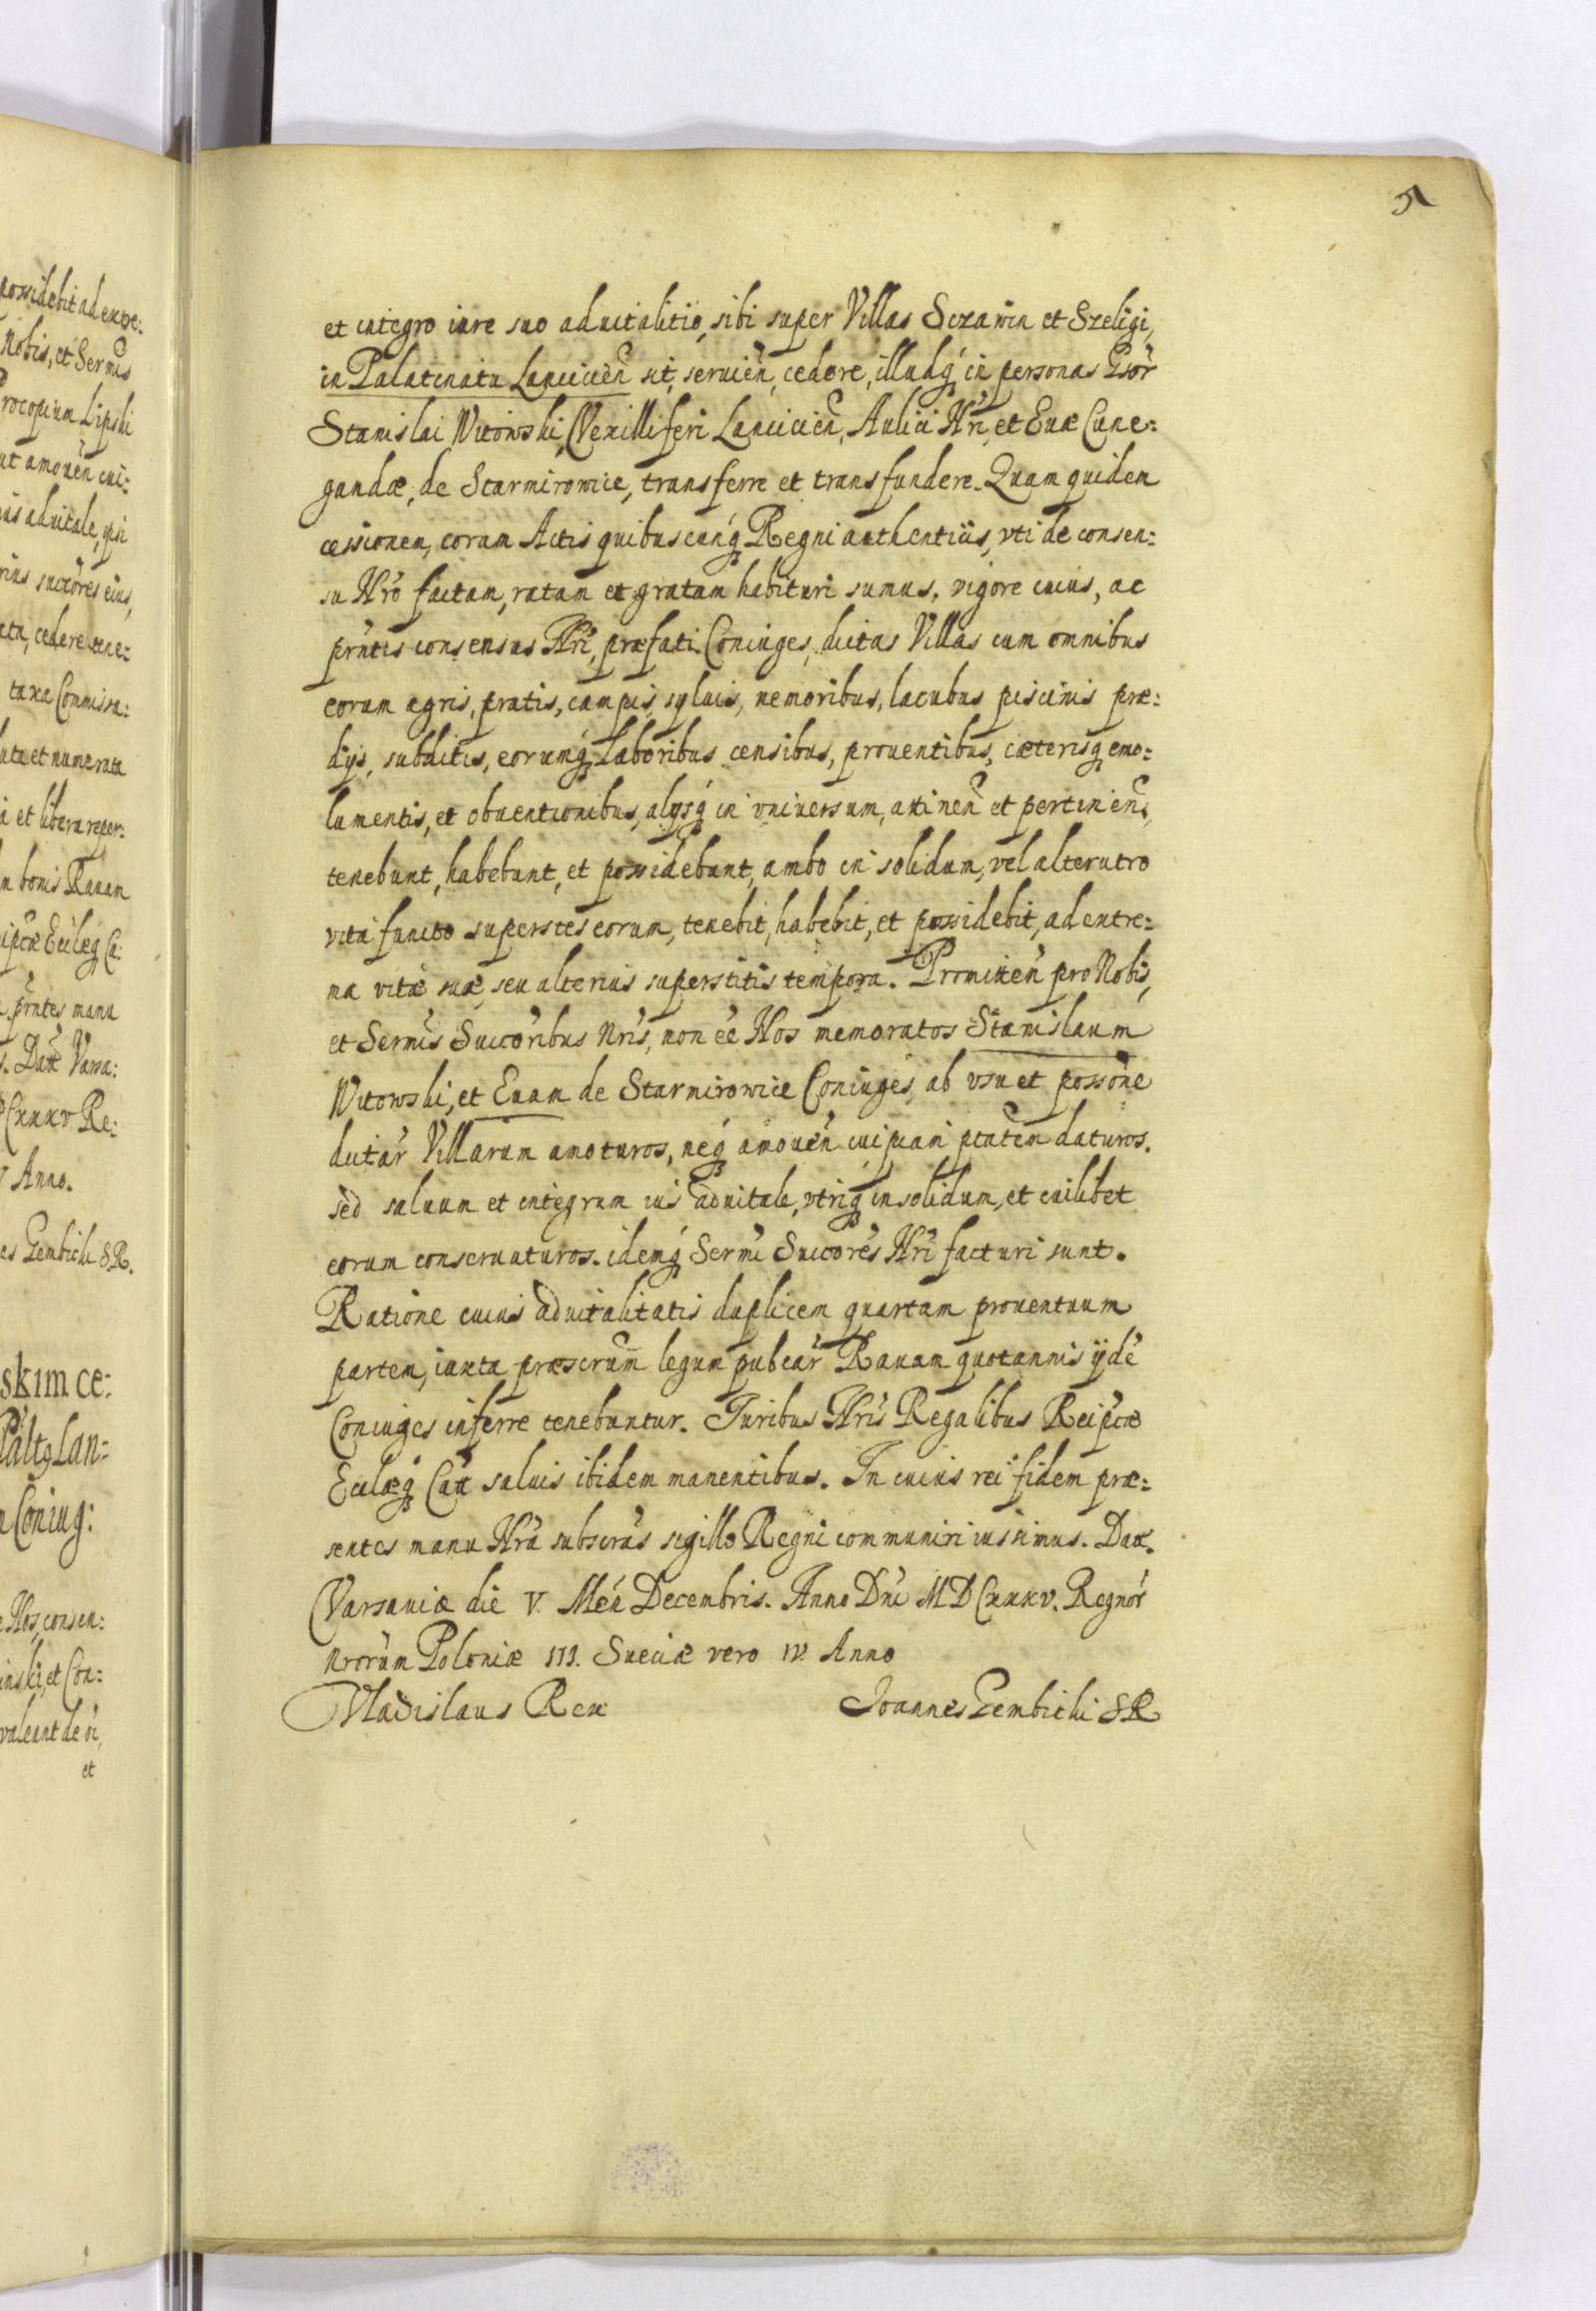 possidebit ad extre:
Nobis, et Sermis
rocopium Lipski
ut amouen cui:
ius aduitale, ipsi
rius succores eius,
ata, cedere tene:
taxa Commissa:
luta et numerata
a et libera reper:
n bonis Rauam
eipcæ Eccleq Ca:
prntes manu
s. Dat Varsa:
Cxxxv Re:
Anno.
es Gembicki SR.
skim ce:
Pált9 Lan:
Coniug:
Hos, consen:
inski, et Con:
valeant de ói,
et
5
et integro iure suo aduitalitio, sibi super Villas Sczawin et Szeligi,
in Palatinatu Lancicień sit, seruień, cedere, illudq in personas Gsór
Stanislai Witowski, Vexilliferi Lancicień, Aulici Nri, et Euæ Cune:
gundæ, de Starmirowice, transferre et transfundere. Quam quidem
cessionem, coram Actis quibuscunq Regni authenticis, vti de consen:
su Nro factam, ratam et gratam habituri sumus, vigore cuius, ac
prntis consensus Nri, præfati Coniuges, dictas Villas cum omnibus
eorum agris, pratis, campis, syluis, nemoribus, lacubus piscinis præ:
dijs, subditis, eorumq Laboribus censibus, prouentibus, cæterisq emo:
lumentis, et obuentionibus, alijsq in vniuersum, attineń et pertineń,
tenebunt, habebunt, et possidebunt, ambo in solidum, vel alterutro
vita functo superstes eorum, tenebit, habebit, et possidebit, ad extre:
ma vitæ suæ, seu alterius superstitis tempora. Promitteń pro Nobis,
et Sermis Succoribus Nris, non eé Nos memoratos Stanislaum
Witowski, et Euam de Starmirowice Coniuges, ab vsu et possóne
dictár Villarum amoturos, neq amouéń cuipiam ptatem daturos.
sed saluum et integrum ius aduitale, vtriq in solidum, et cuilibet
eorum conseruaturos. idemq Sermi Succores Nri facturi sunt.
Ratione cuius aduitalitatis duplicem quartam prouentuum
partem, iuxta præscrum legum pubcár Rauam quotannis ijdé
Coniuges inferre tenebuntur. Iuribus Nris Regalibus Reipcæ
Ecclæq Cáæ saluis ibidem manentibus. In cuius rei fidem præ:
sentes manu Nrá subscrás sigillo Regni communiri iussimus. Dat.
Varsauiæ die V. Meń Decembris. Anno Dni MDCxxxv. Regnór
Nrorum Poloniæ III. Sueciæ vero IV. Anno
Vladislaus Rex Joannes Gembicki SR